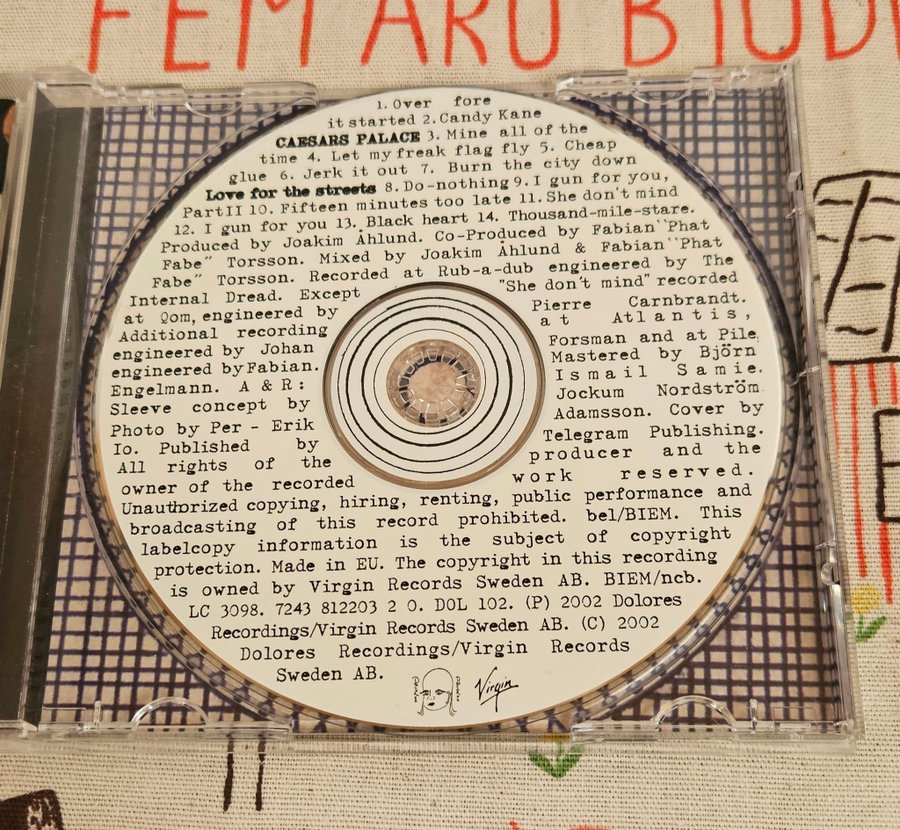 FEM ARU BJUD
1. Over fore
it started 2. Candy Kane
CAESARS PALACE 3. Mine all of the
time 4. Let my freak flag fly 5. Cheap
glue 6. Jerk it out 7. Burn the city down
Love for the streets 8. Do-nothing 9. I gun for you,
Part II 10. Fifteen minutes too late 11. She don't mind
12. I gun for you 13. Black heart 14. Thousand-mile-stare.
Produced by Joakim Åhlund. Co-Produced by Fabian "Phat
Fabe" Torsson. Mixed by Joakim Åhlund & Fabian "Phat
Fabe" Torsson. Recorded at Rub-a-dub engineered by The
Internal Dread. Except "She don't mind" recorded
at Qom, engineered by Pierre Carnbrandt.
Additional recording at Atlantis,
engineered by Johan Forsman and at Pile
engineered by Fabian. Mastered by Björn
Engelmann. A & R: Ismail Samie.
Sleeve concept by Jockum Nordström
Photo by Per - Erik Adamsson. Cover by
Io. Published by Telegram Publishing.
All rights of the producer and the
owner of the recorded work reserved.
Unauthorized copying, hiring, renting, public performance and
broadcasting of this record prohibited. bel/BIEM. This
labelcopy information is the subject of copyright
protection. Made in EU. The copyright in this recording
is owned by Virgin Records Sweden AB. BIEM/ncb.
LC 3098. 7243 812203 2 0. DOL 102. (P) 2002 Dolores
Recordings/Virgin Records Sweden AB. (C) 2002
Dolores Recordings/Virgin Records
Sweden AB.
Virgin